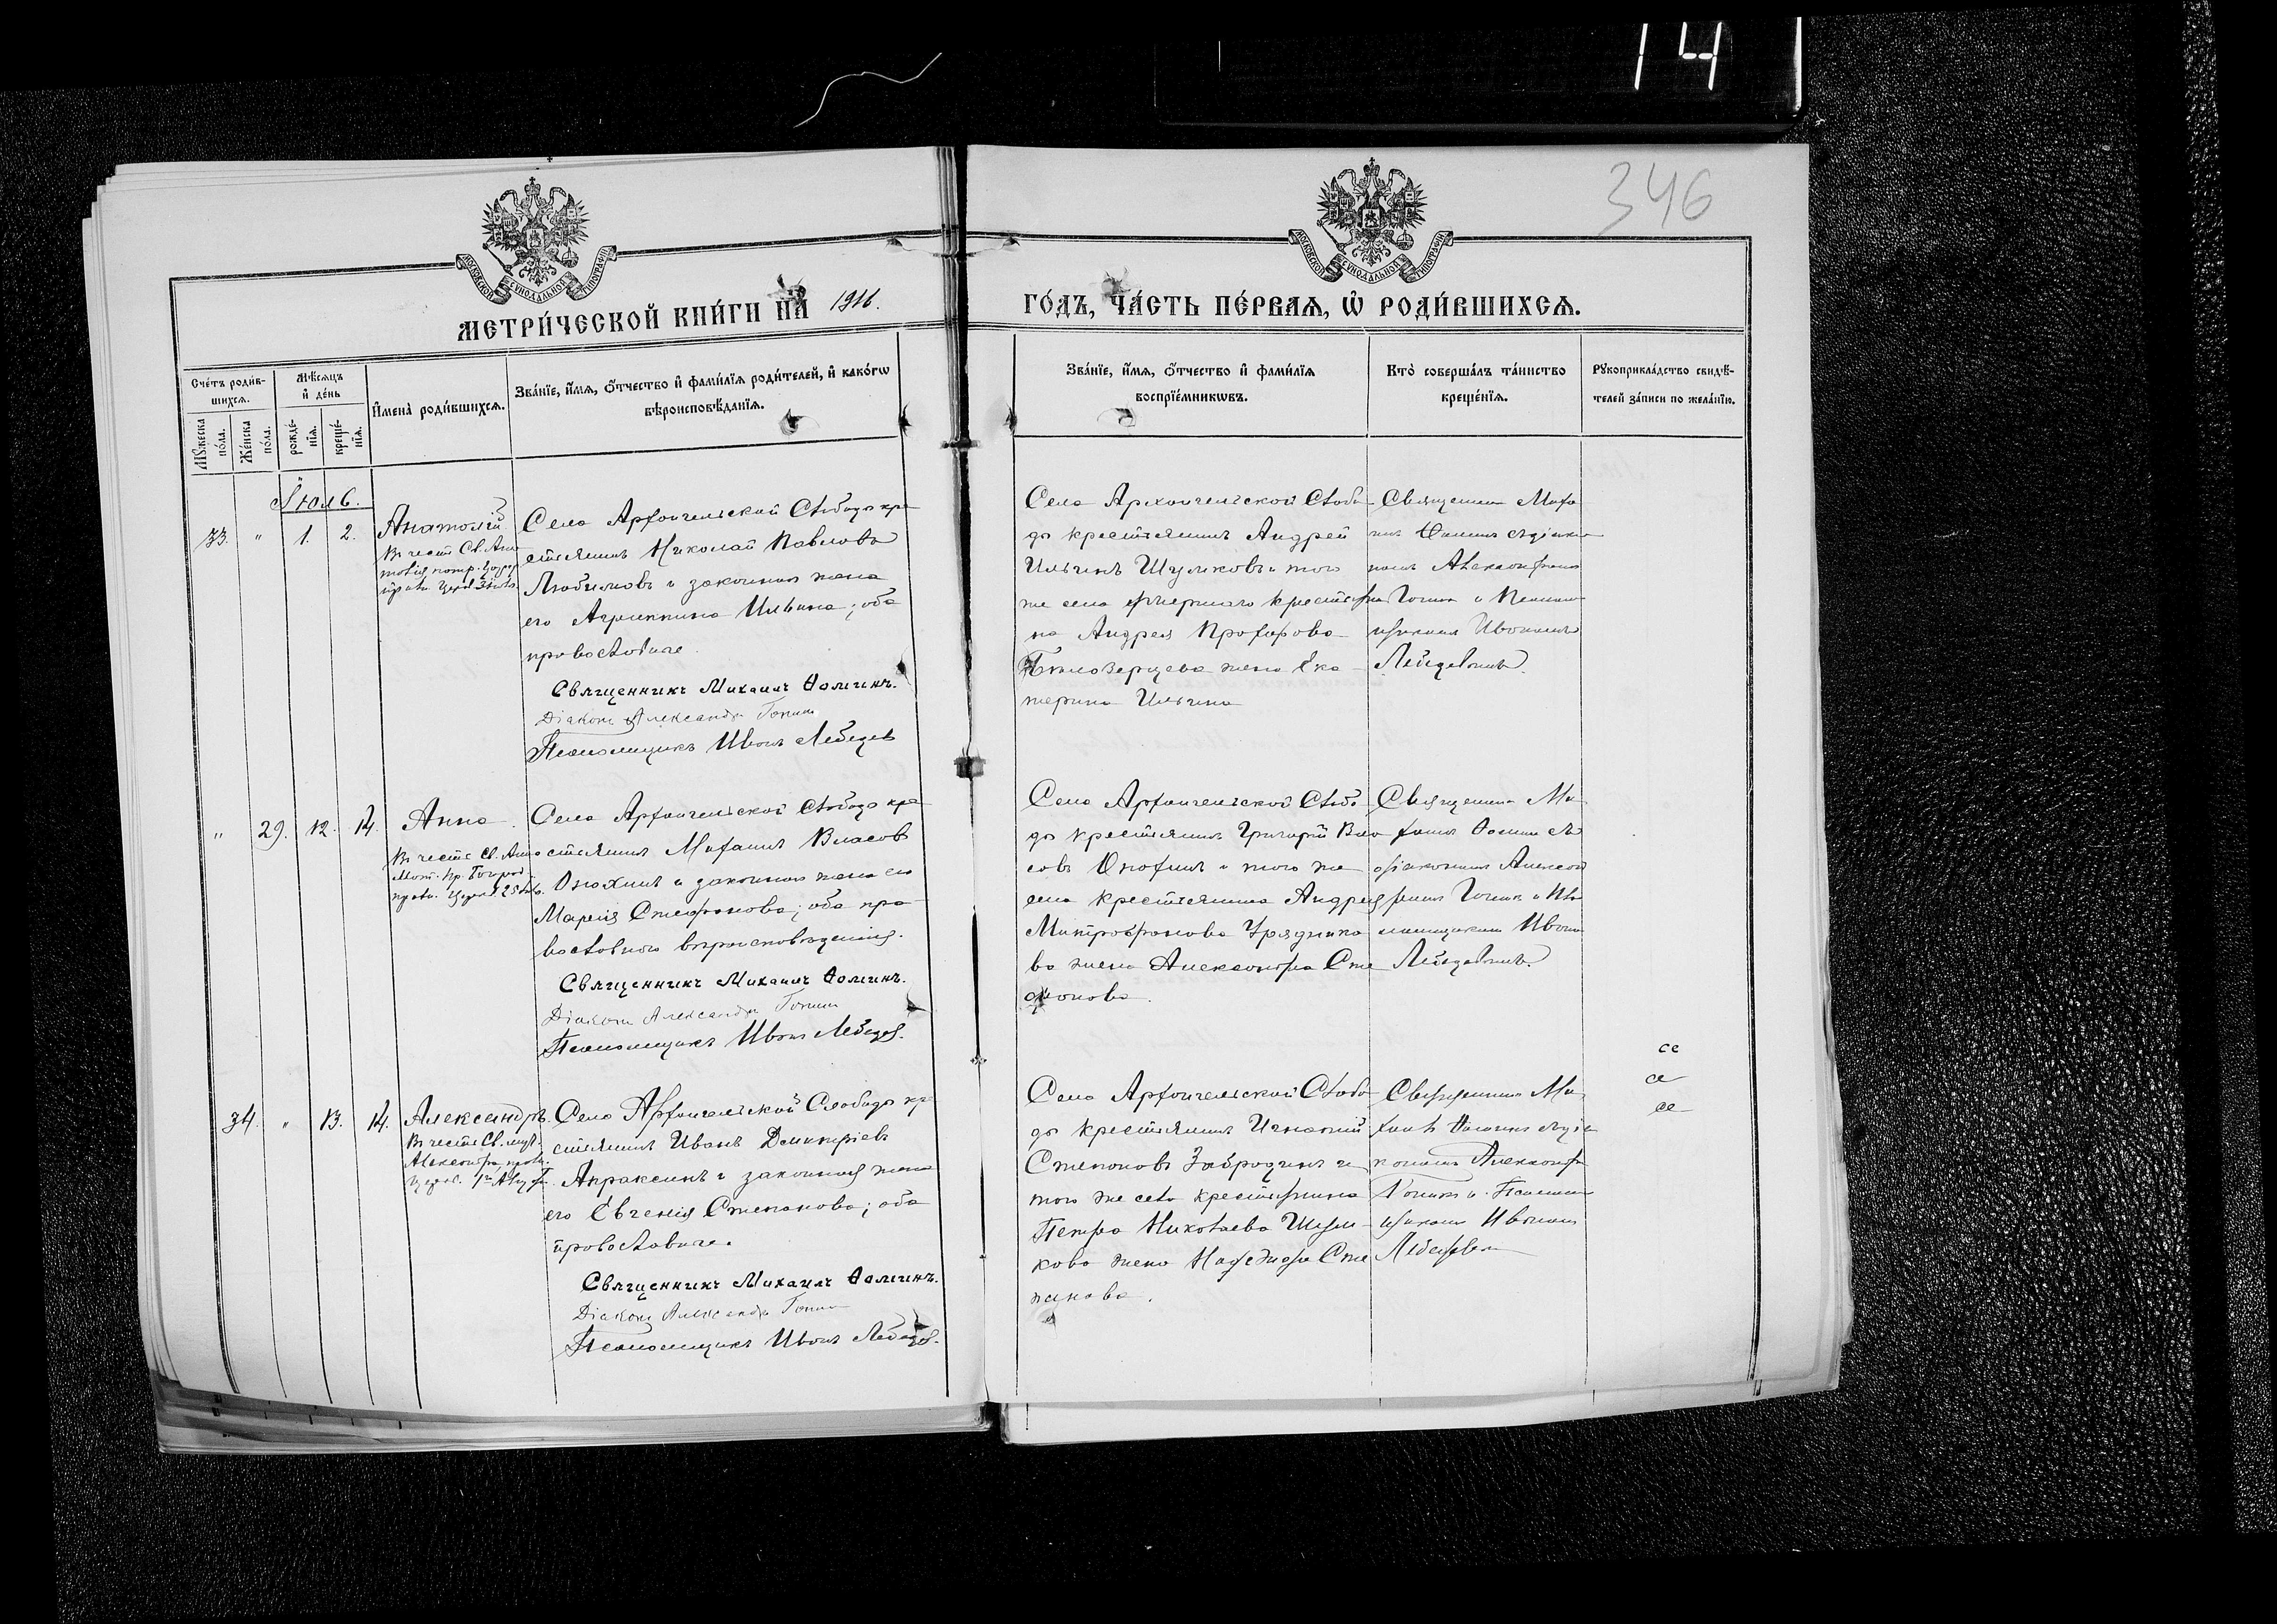 14
346
МОСКОВСКОЙ СѴНОДАЛЬНОЙ ТИПОГРАФІИ
МОСКОВСКОЙ СѴНОДАЛЬНОЙ ТИПОГРАФІИ
МЕТРИ́ЧЕСКОЙ КНИ́ГИ НА 1916.
ГО́ДЪ, ЧА́СТЬ ПЕ́РВАЯ, Ѡ РОДИ́ВШИХСЯ.
Сче́тъ роди́в-
шихся.
Мꙋжеска по́ла.
Же́нска по́ла.
Мѣ́сяцъ
и҆ де́нь
рожде́-
нїя.
креще́-
нїя.
И҆мена̀ роди́вшихся.
Зва́нїе, и҆́мя, ѻ҆́тчество и҆ фами́лїя роди́телей, и҆ како́гѡ
вѣроисповѣ́данїя.
Зва́нїе, и҆́мя, ѻ҆́тчество и҆ фами́лїя
воспрїе́мникѡвъ.
Кто̀ соверша́лъ та́инство
креще́нїя.
Рꙋкоприкла́дство свидѣ́-
телей за́писи по жела́нїю.
Іюль.
33. " 1. 2.
Анатолій
Въ честь Св. Ана
толія патр.
празн. Церк. 3 Іюля
Села Архангельской Слободы кре
стьянинъ Николай Павловъ
Любимовъ и законная жена
его Агриппина Ильина; оба
православные.
Священникъ Михаилъ Ѳоминъ.
Діаконъ Александръ Тонин
Псаломщикъ Иванъ Лебедев
Села Архангельской Слобо
ды крестьянинъ Андрей
Ильинъ Шуликовъ и того
же села крестья
на Андрея Прохорова
Бѣлозерцева жена Ека
терина Ильина
Священник Миха
илъ Ѳоминъ съ діако
номъ Александром
и Псалом
щиком Иваномъ
Лебедевымъ.
" 29. 12. 14.
Анна.
Въ честь Св. Анны
Мат. Пр. Богород.
празн. Церк. 25 Іюл.
Села Архангельской Слободы кре
стьянинъ Михаилъ Власов
и законная жена его
Марія Стефанова; оба пра
вославного вѣроисповѣданія.
Священникъ Михаилъ Ѳоминъ.
Діаконъ Александръ Тонин
Псаломщикъ Иванъ Лебедев.
Села Архангельской Слобо
ды крестьянинъ Григорій Вла
совъ и того же
села крестьянина Андрея
Митрофанова Урядника
ва жена Александра Сте
фанова.
Священник Ми
хаилъ Ѳомин съ
діакономъ Алексан
дромъ и Пса
ломщиком Иваном
Лебедевымъ
34. " 13. 14.
Александръ.
Въ честь Св. муч.
Александра, празн.
Церк. 1го Авг
Села Архангельской Слободы кре
стьянинъ Иванъ Дмитріевъ
Апраксинъ и законная жена
его Евгенія Степанова; оба
православные.
Священникъ Михаилъ Ѳоминъ.
Діаконъ Александръ Тонин
Псаломщикъ Иванъ Лебедев.
Села Архангельской Слобо
ды крестьянинъ Игнатій
Степановъ Забродинъ и
того же села крестьянина
Петра Николаева Шули
кова жена Надежда Сте
панова.
Священникъ Ми
хаилъ Ѳоминъ съ діа
кономъ Александр
и Псалом
щиком Иваном
Лебедевым